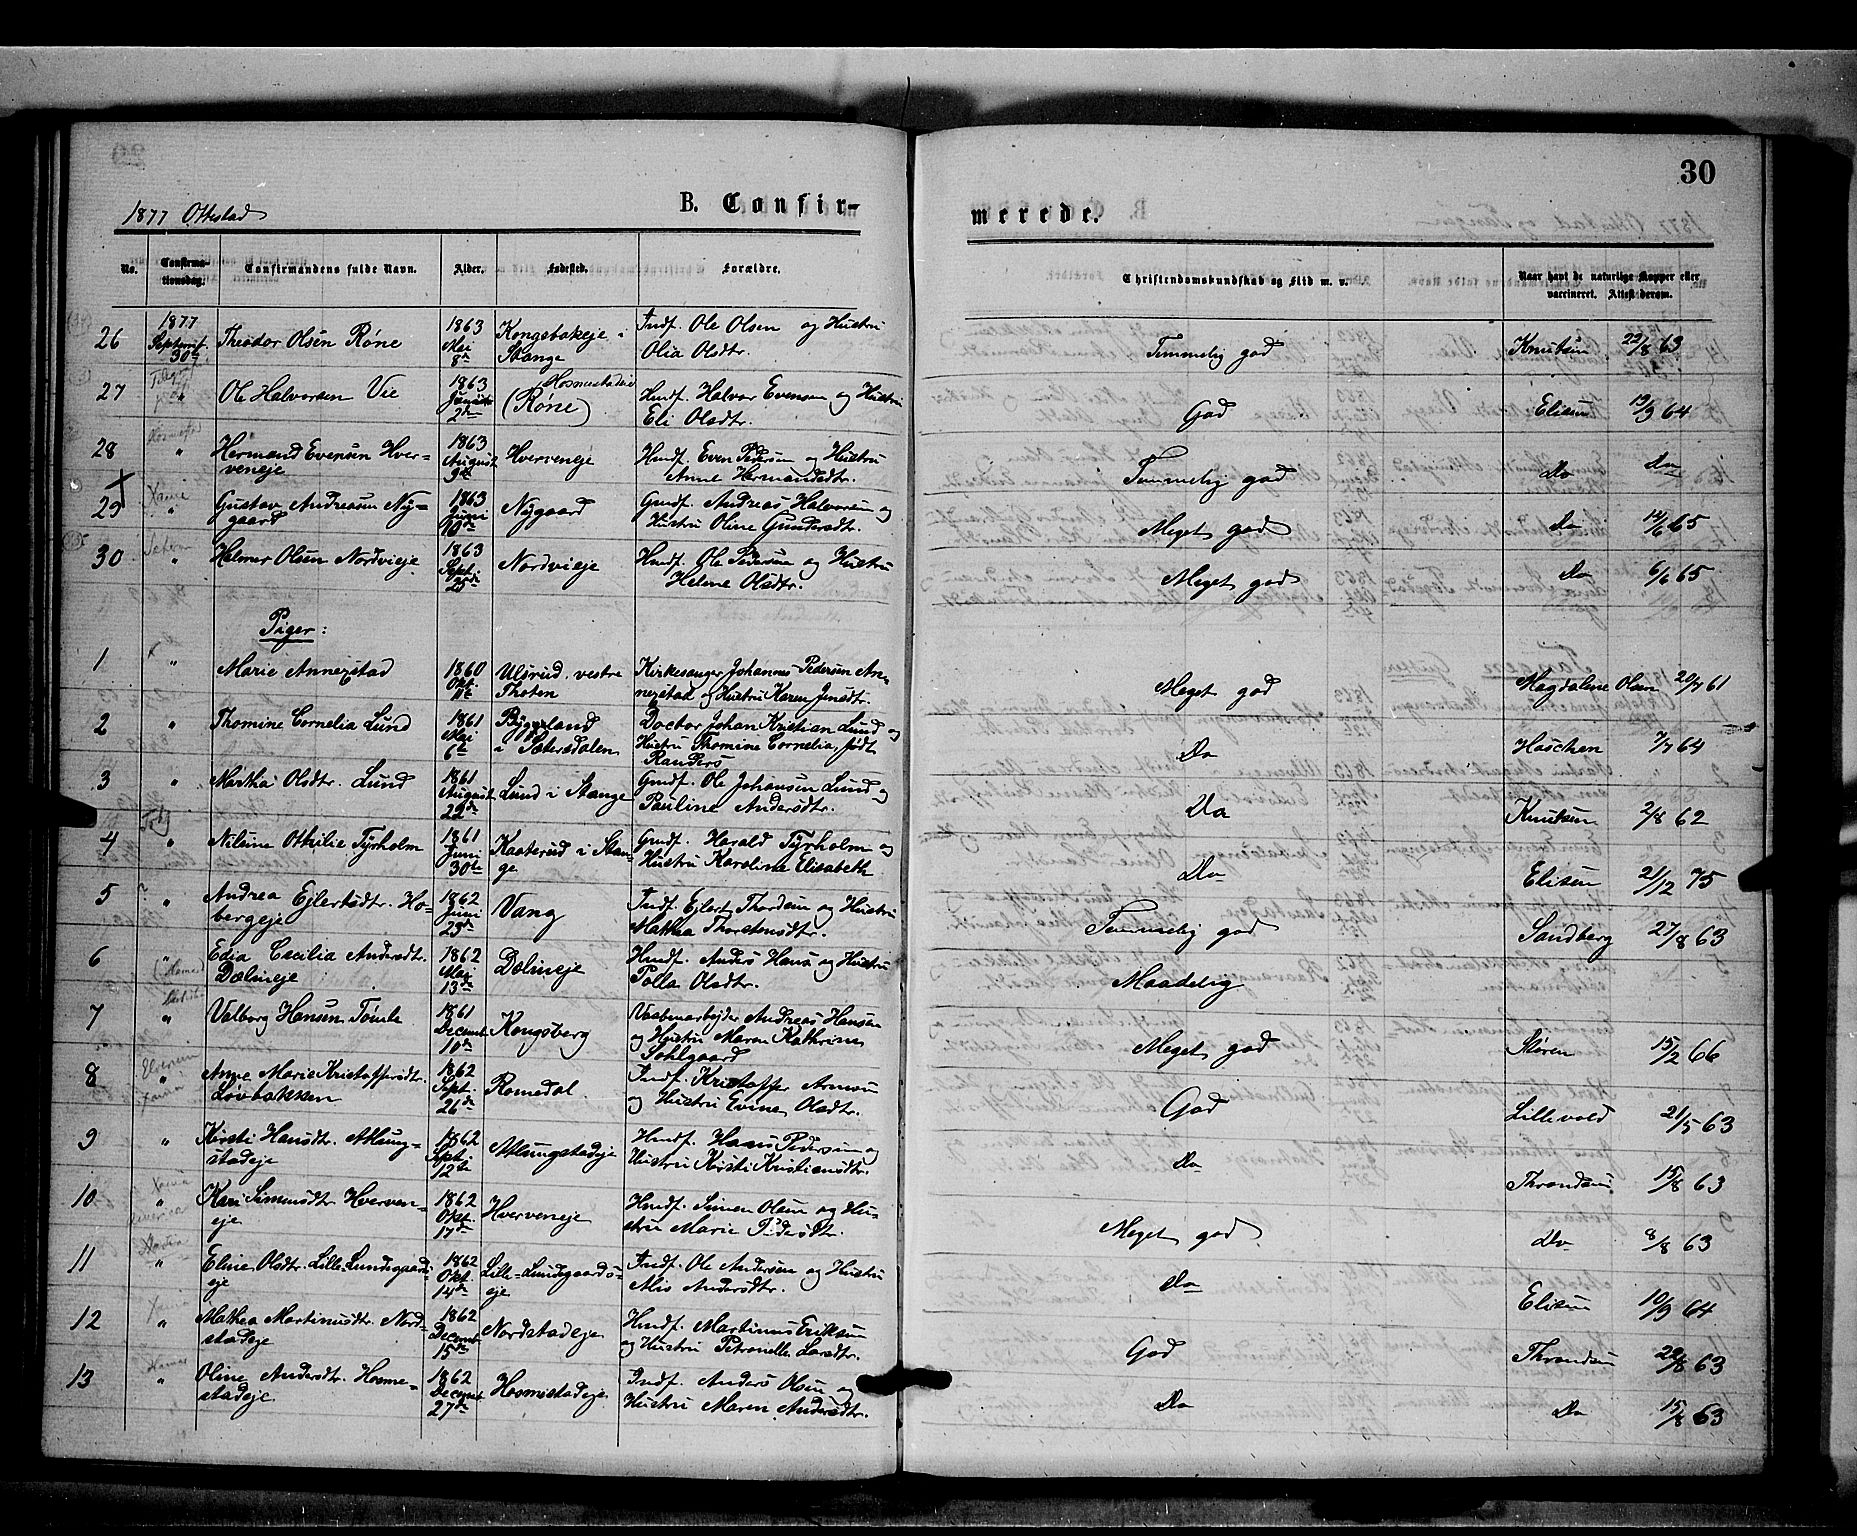 30
1877 Ottestad
B. Confir-
merede.
No. Confirma-tionsdag. Confirmandens fulde Navn. Alder. Fødested. Forældre. Christendomskundskab og Flid m. v. Naar havt de naturlige Kopper eller vaccineret. Attest derom.
26 1877 Septembr 30te Theodor Olsen Røne 1863 Mai 8de Kongsbakeje i Stange Indf. Ole Olsen og Hustru Olia Olsdtr. Temmelig god Knutsen 22/8 63
27 " Ole Halvorsen Vie 1863 Juni 2den Hosmestadeie (Røne) Hmdf. Halvor Evensen og Hustru Eli Olsdtr. God Elisen 19/9 64
28 " Hermand Evensen Hver-veneje 1863 August 9de Hverveneje Hmdf. Even Pedersen og Hustru Anne Hermandsdtr. Temmelig god Do Do
29 " Gustav Andreasen Ny-gaard 1863 Juni 10de Nygaard Gmdf. Andreas Halvorsen og Hustru Oline Gundersdtr. Meget god Do 14/6 65
30 " Helmer Olsen Nordvieje 1863 Sept. 25de Nordvieje Hmdf. Ole Pedersen og Hustru Helene Olsdtr. Meget god Do 6/6 65
Piger:
1 " Marie Annexstad 1860 Okt. Ulsrud, vestre Thoten Kirkesanger Johannes Pedersen An-nexstad og Hustru Karen Jensdtr. Meget god Magdalene Olsen 20/7 61
2 " Thomine Cornelia Lund 1861 Mai 6te Bygland i Sætersdalen Doctor Johan Kristian Lund og Hustru Thomine Cornelia, født Randers Do Haschen 7/7 64
3 " Martha Olsdtr. Lund 1861 August 22de Lund i Stange Gmdf. Ole Johansen Lund og Pauline Andersdtr. Do Knutsen 2/8 62
4 " Nilsine Othilie Tyrholm 1861 Juni 30te Kaaterud i Stan-ge Gmdf. Harald Tyrholm og Hustru Karoline Elisabeth Do Elisen 21/12 75
5 " Andrea Ejlertsdtr. Ho-bergeje 1862 Juni 23de Vang Indf. Ejlert Thordsen og Hustru Mathea Thorstensdtr. Temmelig god Sandberg 27/8 63
6 " Edia Cecilia Andersdtr. Dælineje 1862 Mai 13de Dælineje Hmdf. Anders Hans og Hustru Polla Olsdtr. Maadelig
7 " Valborg Hansen Tomle 1861 Decemb. 10de Kongsberg Vaabenarbejder Andreas Hansen og Hustru Maren Kathrine Sohlgaard Meget god Støren 15/2 66
8 " Anne Marie Kristoffersdtr. Løvbakken 1862 Sept. 26de Romedal Indf. Kristoffer Arnesen og Hustru Evine Olsdtr. God Lillevold 21/5 63
9 " Kirsti Hansdtr. Atlung-stadeje 1862 Sept. 12te Atlungstadeje Hmdf. Hans Pedersen og Hustru Kirsti Kristiansdtr. Do Throndsen 15/8 63
10 " Kari Simensdtr. Hverven-eje 1862 Okt. 17de Hverveneje Hmdf. Simen Olsen og Hu-stru Marie Pedersdtr. Meget god Do 8/8 63
11 " Eline Olsdtr. Lille-Lundgaards-eje 1862 Okt. 14de Lille-Lundgaards-eje Indf. Ole Andersen og Hustru Alis Andersdtr. Do Elisen 10/9 64
12 " Mathea Martinusdtr. Nord-stadeje 1862 Decemb. 15de Nordstadeje Hmdf. Martinus Eriksen og Hustru Petronelle Larsdtr. God Throndsen 22/8 63
13 " Oline Andersdtr. Hosme-stadeje 1862 Decemb. 27de Hosmestadeje Indf. Anders Olsen og Hustru Maren Andersdtr. Do Do 15/8 63